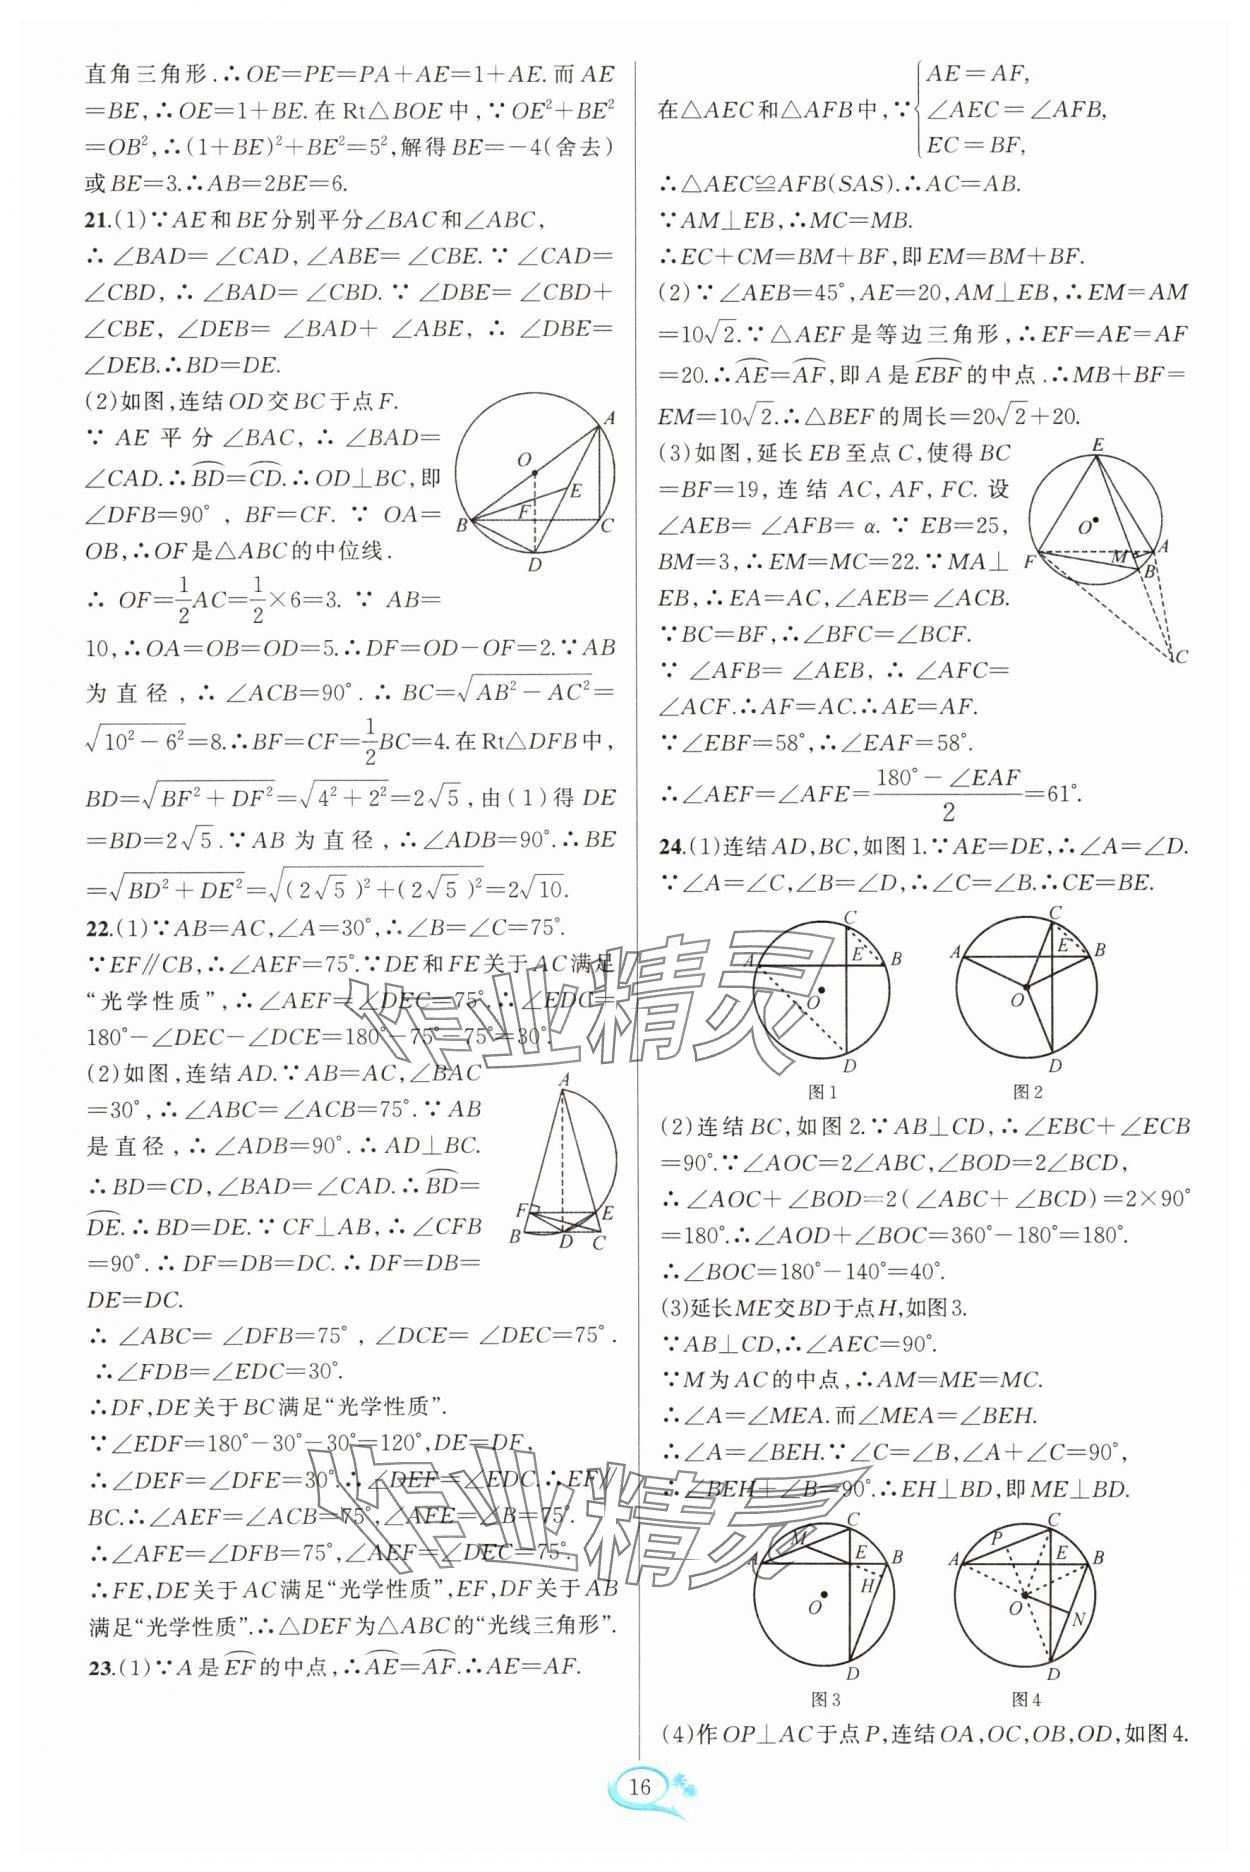 直角三角形.∴OE=PE=PA+AE=1+AE.而AE
=BE,∴OE=1+BE.在Rt△BOE中,∵OE²+BE²
=OB²,∴(1+BE)²+BE²=5²,解得BE=-4(舍去)
或BE=3.∴AB=2BE=6.
21.(1)∵AE和BE分别平分∠BAC和∠ABC,
∴∠BAD=∠CAD,∠ABE=∠CBE.∵∠CAD=
∠CBD,∴∠BAD=∠CBD.∵∠DBE=∠CBD+
∠CBE,∠DEB=∠BAD+∠ABE,∴∠DBE=
∠DEB.∴BD=DE.
(2)如图,连结OD交BC于点F.
∵AE平分∠BAC,∴∠BAD=
∠CAD.∴⌒BD=⌒CD.∴OD⊥BC,即
∠DFB=90°,BF=CF.∵OA=
OB,∴OF是△ABC的中位线.
∴OF=1/2AC=1/2×6=3.∵AB=
10,∴OA=OB=OD=5.∴DF=OD-OF=2.∵AB
为直径,∴∠ACB=90°.∴BC=√(AB²-AC²)=
√(10²-6²)=8.∴BF=CF=1/2BC=4.在Rt△DFB中,
BD=√(BF²+DF²)=√(4²+2²)=2√5,由(1)得DE
=BD=2√5.∵AB为直径,∴∠ADB=90°.∴BE
=√(BD²+DE²)=√((2√5)²+(2√5)²)=2√10.
A
O
E
F
B
C
D
22.(1)∵AB=AC,∠A=30°,∴∠B=∠C=75°.
∵EF∥CB,∴∠AEF=75°.∵DE和FE关于AC满足
“光学性质”,∴∠AEF=∠DEC=75°.∴∠EDC=
180°-∠DEC-∠DCE=180°-75°-75°=30°.
(2)如图,连结AD.∵AB=AC,∠BAC
=30°,∴∠ABC=∠ACB=75°.∵AB
是直径,∴∠ADB=90°.∴AD⊥BC.
∴BD=CD,∠BAD=∠CAD.∴⌒BD=
⌒DE.∴BD=DE.∵CF⊥AB,∴∠CFB
=90°.∴DF=DB=DC.∴DF=DB=
DE=DC.
A
F
E
B
D
C
∴∠ABC=∠DFB=75°,∠DCE=∠DEC=75°.
∴∠FDB=∠EDC=30°.
∴DF,DE关于BC满足“光学性质”.
∵∠EDF=180°-30°-30°=120°,DE=DF,
∴∠DEF=∠DFE=30°.∴∠DEF=∠EDC.∴EF∥
BC.∴∠AEF=∠ACB=75°,∠AFE=∠B=75°.
∴∠AFE=∠DFB=75°,∠AEF=∠DEC=75°.
∴FE,DE关于AC满足“光学性质”,EF,DF关于AB
满足“光学性质”.∴△DEF为△ABC的“光线三角形”.
23.(1)∵A是⌒EF的中点,∴⌒AE=⌒AF.∴AE=AF.
AE=AF,
在△AEC和△AFB中,∵{∠AEC=∠AFB,
EC=BF,
∴△AEC≌AFB(SAS).∴AC=AB.
∵AM⊥EB,∴MC=MB.
∴EC+CM=BM+BF,即EM=BM+BF.
(2)∵∠AEB=45°,AE=20,AM⊥EB,∴EM=AM
=10√2.∵△AEF是等边三角形,∴EF=AE=AF
=20.∴⌒AE=⌒AF,即A是⌒EBF的中点.∴MB+BF=
EM=10√2.∴△BEF的周长=20√2+20.
(3)如图,延长EB至点C,使得BC
=BF=19,连结AC,AF,FC.设
∠AEB=∠AFB=α.∵EB=25,
BM=3,∴EM=MC=22.∵MA⊥
EB,∴EA=AC,∠AEB=∠ACB.
∵BC=BF,∴∠BFC=∠BCF.
∵∠AFB=∠AEB,∴∠AFC=
∠ACF.∴AF=AC.∴AE=AF.
∵∠EBF=58°,∴∠EAF=58°.
∴∠AEF=∠AFE=(180°-∠EAF)/2=61°.
E
O
F
M
A
B
C
24.(1)连结AD,BC,如图1.∵AE=DE,∴∠A=∠D.
∵∠A=∠C,∠B=∠D,∴∠C=∠B.∴CE=BE.
C
A
E
B
O
D
图1
C
A
E
B
O
D
图2
(2)连结BC,如图2.∵AB⊥CD,∴∠EBC+∠ECB
=90°.∵∠AOC=2∠ABC,∠BOD=2∠BCD,
∴∠AOC+∠BOD=2(∠ABC+∠BCD)=2×90°
=180°.∴∠AOD+∠BOC=360°-180°=180°.
∴∠BOC=180°-140°=40°.
(3)延长ME交BD于点H,如图3.
∵AB⊥CD,∴∠AEC=90°.
∵M为AC的中点,∴AM=ME=MC.
∴∠A=∠MEA.而∠MEA=∠BEH.
∴∠A=∠BEH.∵∠C=∠B,∠A+∠C=90°,
∴∠BEH+∠B=90°.∴EH⊥BD,即ME⊥BD.
C
M
A
E
B
H
O
D
图3
C
P
A
E
B
O
N
D
图4
(4)作OP⊥AC于点P,连结OA,OC,OB,OD,如图4.
16
作业精灵
作业精灵